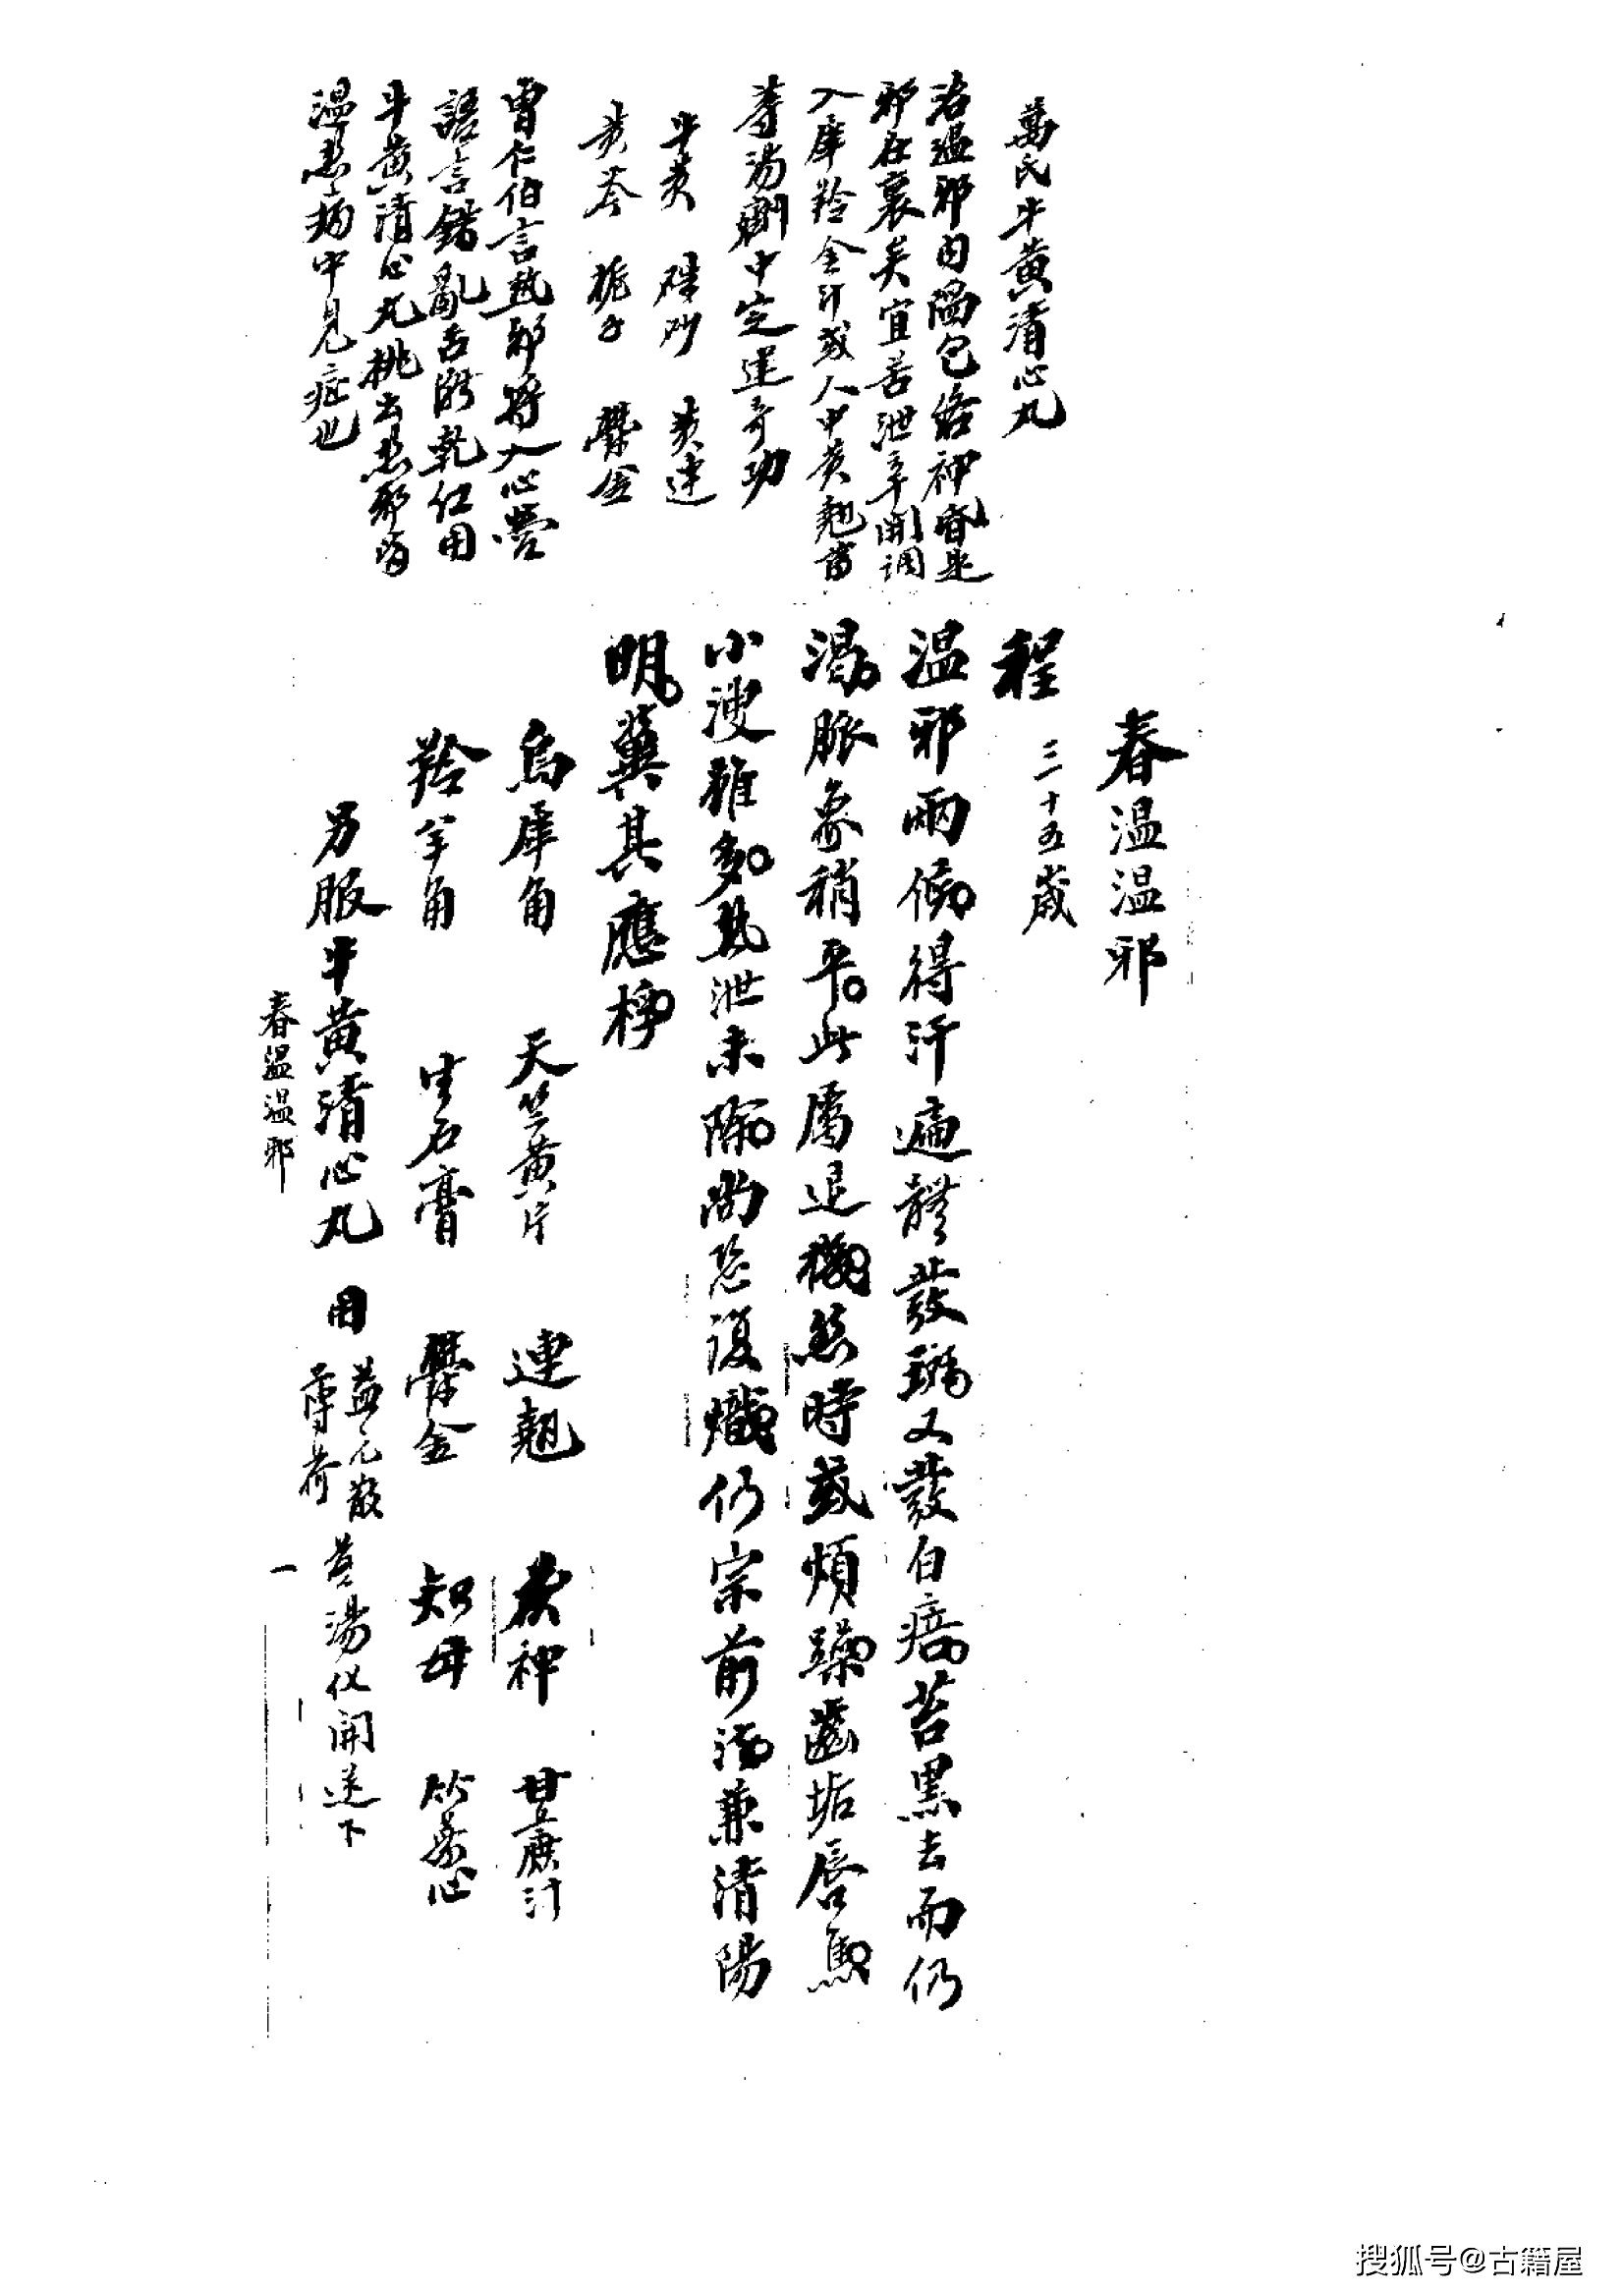 萬氏牛黃清心丸
治溫邪內陷包絡神昏是
邪在裏矣宜苦泄辛開調
入犀羚金汁或人中黃翹菖
等湯劑中定建奇功
牛黃　硃砂　黃連
黃芩　梔子　鬱金
曹仁伯言熱邪將入心營
語言錯亂舌乾紅用
牛黃清心丸挑出熱邪爲
溫熱病中見症也
春溫溫邪
程　三十五歲
溫邪兩候得汗遍體發斑又發白㾦苔黑去而仍
渴脈象稍平此屬退機然時或煩躁齒垢唇焦
小溲雖多熱泄未除尚恐復熾仍宗前法兼清陽
明冀其應桴
烏犀角　天竺黃片　連翹　茯神　甘蔗汁
羚羊角　生石膏　鬱金　知母　竹葉心
另服牛黃清心丸　用益元散薄荷煎湯化開送下
春溫溫邪
一
搜狐号@古籍屋